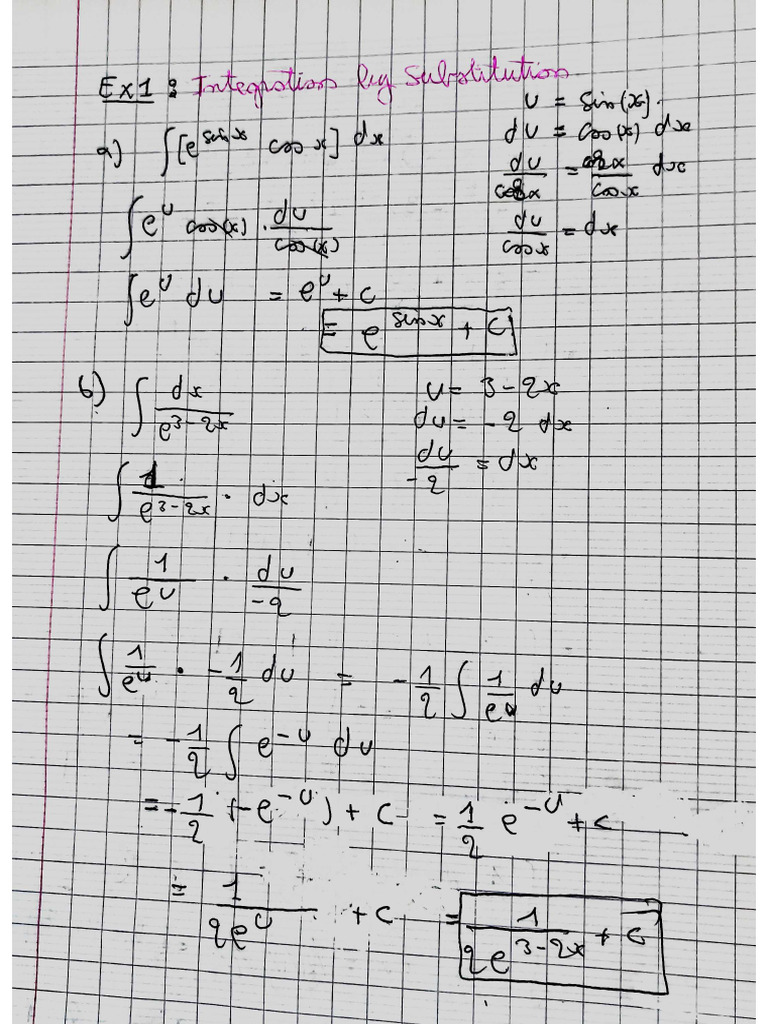 Ex1 : Integration by Substitution
a) ∫[e^{sin x} cos x] dx
u = sin(x).
du = cos(x) dx
du/cos x = cos x/cos x dx
du/cos x = dx
∫ e^u cos(x) . du/cos(x)
∫ e^u du = e^u + c
= e^{sin x} + C
b) ∫ dx/e^{3-2x}
u = 3 - 2x
du = -2 dx
du/-2 = dx
∫ 1/e^{3-2x} . dx
∫ 1/e^u . du/-2
∫ 1/e^u . -1/2 du = -1/2 ∫ 1/e^u du
= -1/2 ∫ e^{-u} du
= -1/2 (-e^{-u}) + C = 1/2 e^{-u} + c
= 1/2e^u + C = 1/2e^{3-2x} + C